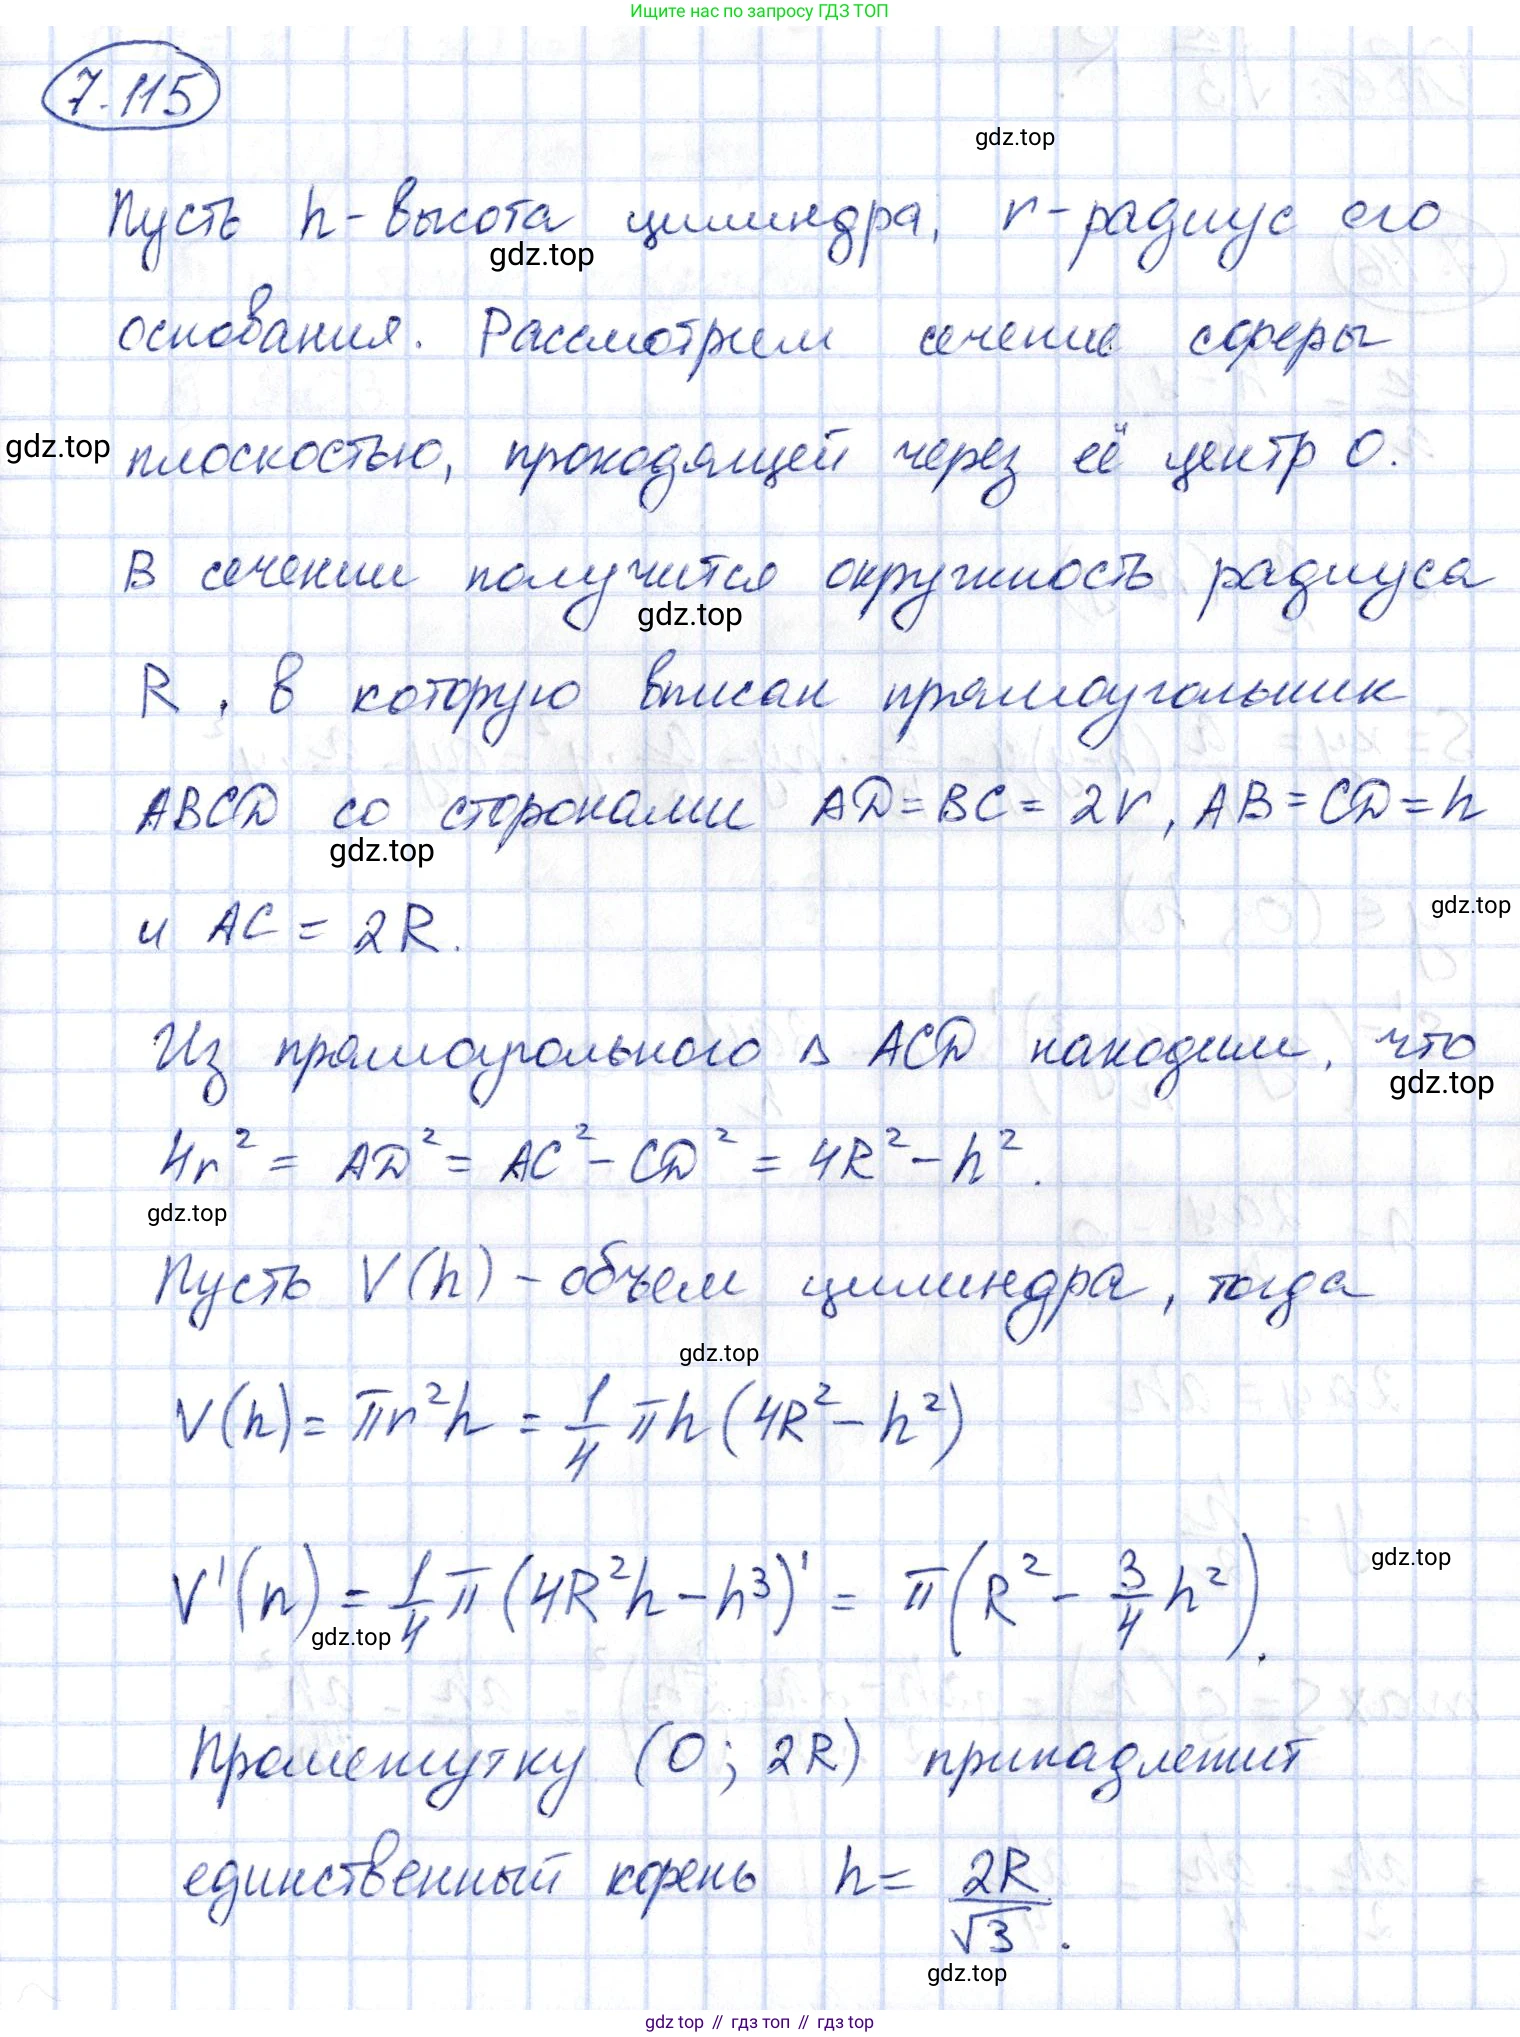 Ищите нас по запросу ГДЗ ТОП
7.115
gdz.top
Пусть h - высота цилиндра, r - радиус его
gdz.top
основания. Рассмотрим сечение сферы
gdz.top
плоскостью, проходящей через её центр O.
В сечении получится окружность радиуса
gdz.top
R, в которую вписан прямоугольник
ABCD со сторонами AD = BC = 2r, AB = CD = h
gdz.top
gdz.top
и AC = 2R.
Из прямоугольного Δ ACD находим, что
gdz.top
4r² = AD² = AC² - CD² = 4R² - h².
gdz.top
Пусть V(h) - объем цилиндра, тогда
gdz.top
V(h) = πr²h = 1/4 πh (4R² - h²)
V'(h) = 1/4 π (4R²h - h³)' = π(R² - 3/4 h²).
gdz.top
gdz.top
Промежутку (0; 2R) принадлежит
единственный корень h = 2R/√3.
gdz.top
gdz top // гдз топ // гдз top